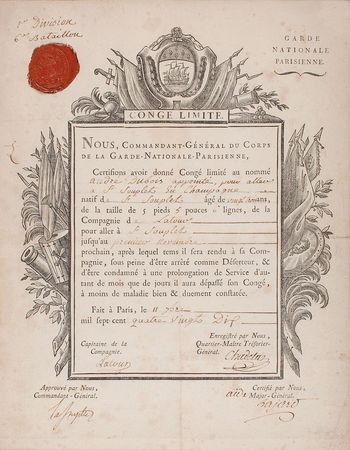 1re Division
6me Bataillon
GARDE
NATIONALE
PARISIENNE.
CONGÉ LIMITÉ.
NOUS, COMMANDANT-GÉNÉRAL DU CORPS
DE LA GARDE-NATIONALE-PARISIENNE,
Certifions avoir donné Congé limité au nommé
andré Dubois appointé, pour aller
a St Souplet En Champagne
natif de St Souplet âgé de ans,
de la taille de 5 pieds 5 pouces lignes, de la
Compagnie de Latour
pour aller à St Souplet
jusqu'au premier Novembre
prochain, après lequel tems il sera tendu à sa Com-
pagnie, sous peine d'être arrêté comme Déserteur, &
d'être condamné à une prolongation de Service d'au-
tant de mois que de jours il aura dépassé son Congé,
à moins de maladie bien & duement constatée.
Fait à Paris, le 11 7bre
mil sept cent quatre Vingt Dix
Capitaine de la
Compagnie.
Latour
Enregistré par Nous,
Quartier-Maître Trésorier-
Général.
Approuvé par Nous,
Commandant-Général.
Certifié par Nous,
Major-Général.